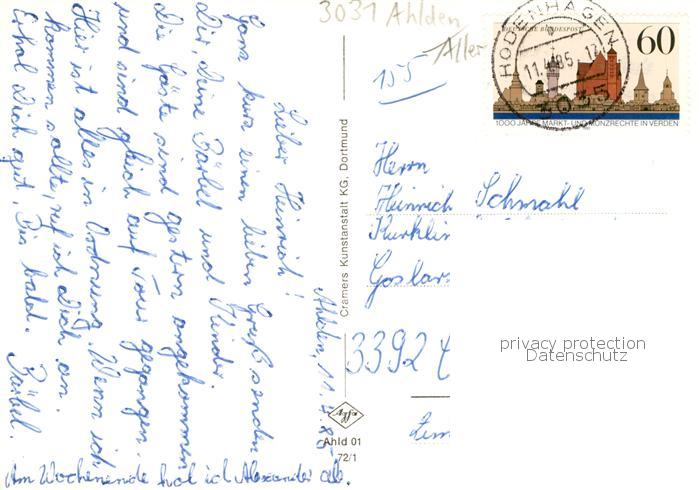 3031 Ahlden
Aller
Ahlden, 11.4.85
Lieber Heinrich!
Ganz kurz einen lieben Gruß senden
Dir, Deine Bärbel und Kinder.
Die Gäste sind gestern angekommen
und sind gleich auf Tour gegangen.
Hier ist alles in Ordnung. Wenn ich
kommen sollte, ruf ich Dich an.
Erhol Dich gut. Bis bald. Bärbel.
Am Wochenende hol ich Alexander ab.
Cramers Kunstanstalt KG, Dortmund
Agfa
Ahld 01
72/1
155
DEUTSCHE BUNDESPOST
60
1000 JAHRE MARKT- UND MÜNZRECHTE IN VERDEN
HODENHAGEN
11.4.85
3035
Herrn
Heinrich Schmahl
Kurklin
Goslar
3392
privacy protection
Datenschutz